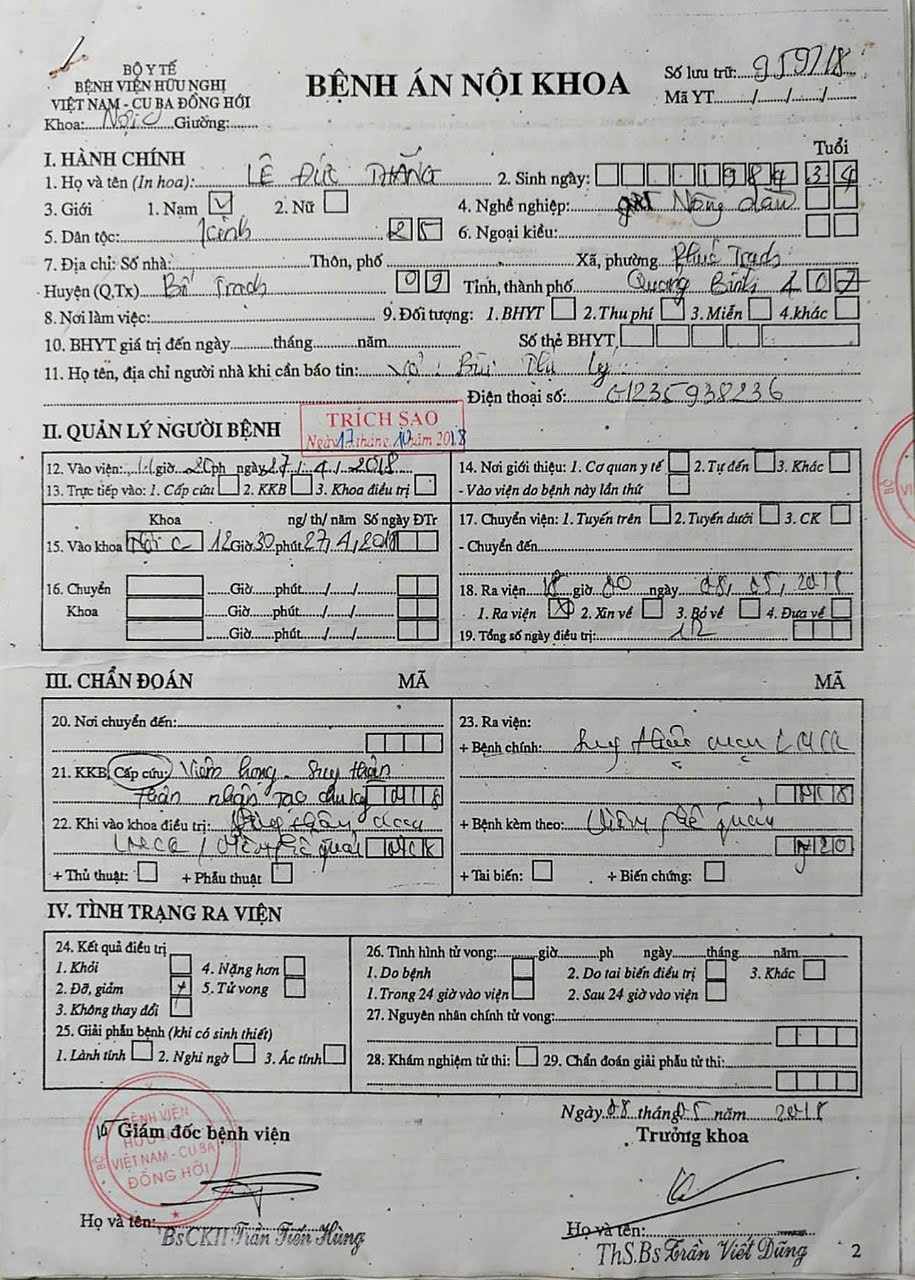 BỘ Y TẾ
BỆNH VIỆN HỮU NGHỊ
VIỆT NAM - CU BA ĐỒNG HỚI
Khoa: Nội C Giường:........
BỆNH ÁN NỘI KHOA
Số lưu trữ: 959718
Mã YT......../......./......./.......
I. HÀNH CHÍNH
Tuổi
1. Họ và tên (In hoa): LÊ ĐỨC THẮNG 2. Sinh ngày: 1984 34
3. Giới 1. Nam v 2. Nữ 4. Nghề nghiệp: Nông dân
5. Dân tộc: Kinh 25 6. Ngoại kiều:
7. Địa chỉ: Số nhà: Thôn, phố Xã, phường Phúc Trạch
Huyện (Q,Tx) Bố Trạch 09 Tỉnh, thành phố Quảng Bình 407
8. Nơi làm việc: 9. Đối tượng: 1. BHYT 2. Thu phí 3. Miễn 4. khác
10. BHYT giá trị đến ngày............tháng............năm............ Số thẻ BHYT
11. Họ tên, địa chỉ người nhà khi cần báo tin: Vợ: Bùi Thị Lý
Điện thoại số: 01235938236
TRÍCH SAO
Ngày 17 tháng 10 năm 2018
II. QUẢN LÝ NGƯỜI BỆNH
12. Vào viện: 11 giờ 20 ph ngày 27 / 4 / 2018
13. Trực tiếp vào: 1. Cấp cứu 2. KKB 3. Khoa điều trị
14. Nơi giới thiệu: 1. Cơ quan y tế 2. Tự đến 3. Khác
- Vào viện do bệnh này lần thứ
Khoa ng/ th/ năm Số ngày ĐTr
15. Vào khoa Nội C 12 Giờ 30 phút 27, 4, 2018
16. Chuyển Giờ......phút....../....../......
Khoa Giờ......phút....../....../......
Giờ......phút....../....../......
17. Chuyển viện: 1. Tuyến trên 2. Tuyến dưới 3. CK
- Chuyển đến
18. Ra viện 15 giờ 00 ngày 08, 05, 2018
1. Ra viện x 2. Xin về 3. Bỏ về 4. Đưa về
19. Tổng số ngày điều trị: 12
III. CHẨN ĐOÁN MÃ MÃ
20. Nơi chuyển đến:
21. KKB, Cấp cứu: Viêm họng - Suy thận
thận nhân tạo chu kỳ N18
22. Khi vào khoa điều trị: Suy thận mạn
/ Viêm phế quản N18
+ Thủ thuật: + Phẫu thuật
23. Ra viện:
+ Bệnh chính: Suy thận mạn
N18
+ Bệnh kèm theo: Viêm phế quản
J20
+ Tai biến: + Biến chứng:
IV. TÌNH TRẠNG RA VIỆN
24. Kết quả điều trị
1. Khỏi 4. Nặng hơn
2. Đỡ, giảm x 5. Tử vong
3. Không thay đổi
25. Giải phẫu bệnh (khi có sinh thiết)
1. Lành tính 2. Nghi ngờ 3. Ác tính
26. Tình hình tử vong:........giờ........ph ngày........tháng........năm........
1. Do bệnh 2. Do tai biến điều trị 3. Khác
1. Trong 24 giờ vào viện 2. Sau 24 giờ vào viện
27. Nguyên nhân chính tử vong:
28. Khám nghiệm tử thi: 29. Chẩn đoán giải phẫu tử thi:
Ngày 08 tháng 05 năm 2018
Giám đốc bệnh viện
Trưởng khoa
BỆNH VIỆN
HỮU NGHỊ
VIỆT NAM - CU BA
ĐỒNG HỚI
Họ và tên: BsCKII Trần Tiến Hùng
Họ và tên: ThS.Bs Trần Viết Dũng
2